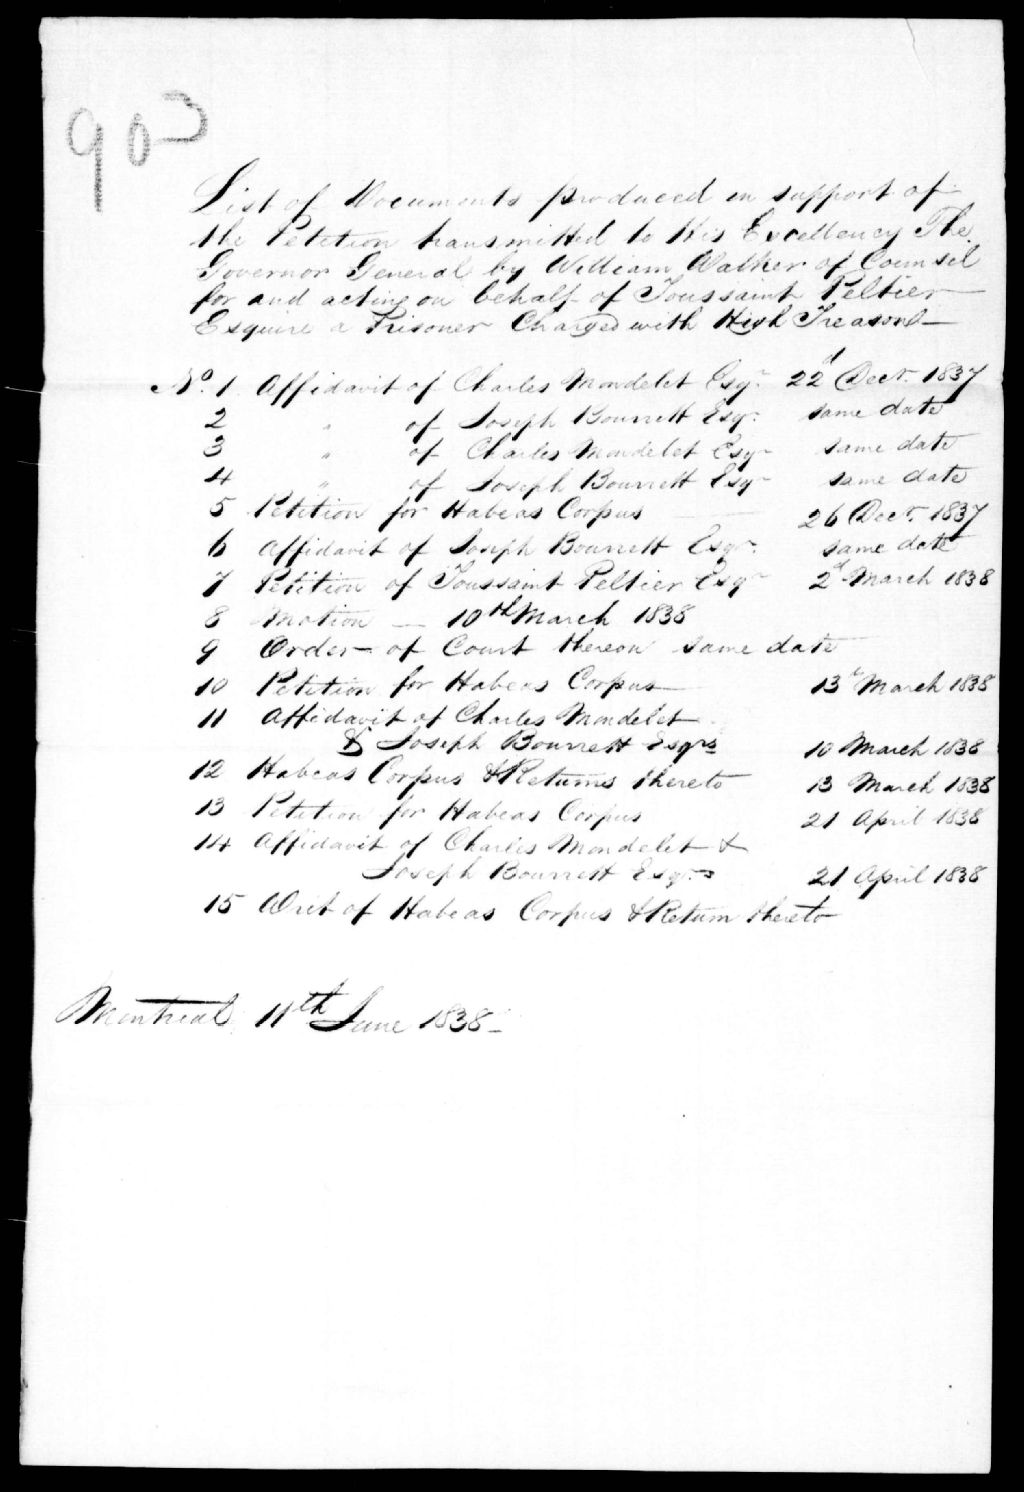 903
List of Documents produced in support of
the Petition transmitted to His Excellency The
Governor General by William Walker of Counsil
for and acting on behalf of Toussaint Peltier
Esquire a Prisoner Charged with High Treason—
No. 1 Affidavit of Charles Mondelet Esqr. 22d Decr. 1837
2 " of Joseph Bourrett Esqr. same date
3 " of Charles Mondelet Esqr same date
4 " of Joseph Bourrett Esqr same date
5 Petition for Habeas Corpus — 26 Decr. 1837
6 Affidavit of Joseph Bourrett Esqr. same date
7 Petition of Toussaint Peltier Esqr 2d March 1838
8 Motion — 10th March 1838
9 Order of Court thereon same date
10 Petition for Habeas Corpus — 13th March 1838
11 Affidavit of Charles Mondelet
& Joseph Bourrett Esqrs 10 March 1838
12 Habeas Corpus & Returns thereto 13 March 1838
13 Petition for Habeas Corpus 21 April 1838
14 Affidavit of Charles Mondelet &
Joseph Bourrett Esqrs 21 April 1838
15 Writ of Habeas Corpus & Return thereto
Montreal 11th June 1838—